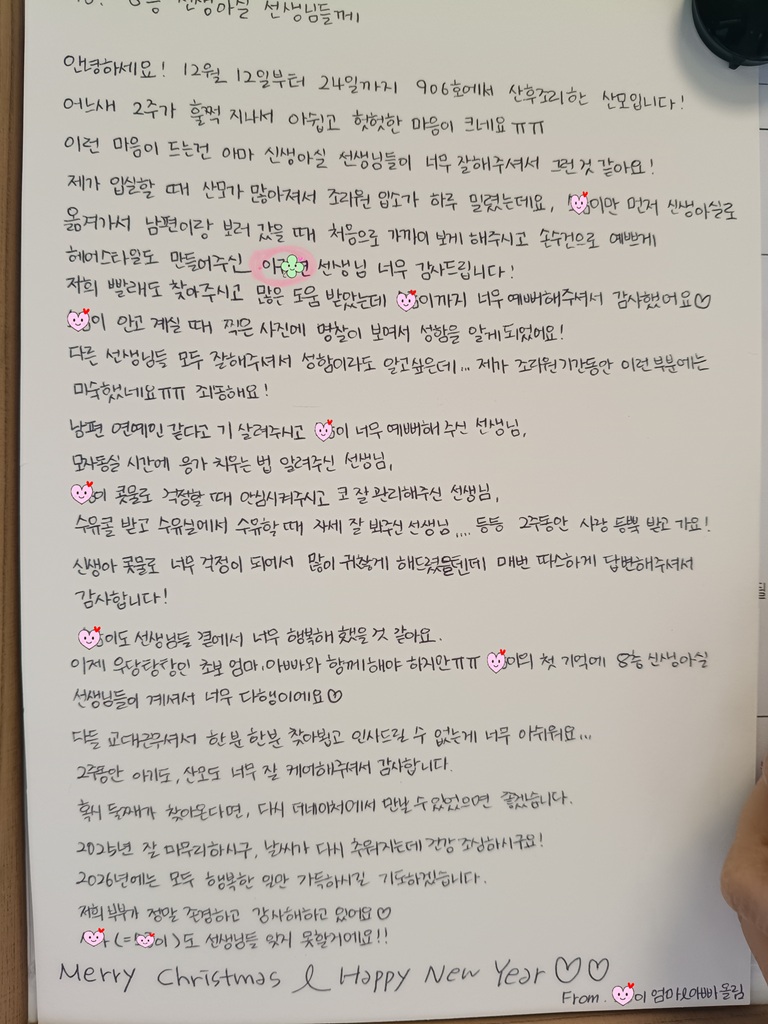 8층 신생아실 선생님들께
안녕하세요! 12월 12일부터 24일까지 906호에서 산후조리한 산모입니다!
어느새 2주가 훌쩍 지나서 아쉽고 헛헛한 마음이 크네요ㅠㅠ
이런 마음이 드는건 아마 신생아실 선생님들이 너무 잘해주셔서 그런것 같아요!
제가 입실할 때 산모가 많아져서 조리원 입소가 하루 밀렸는데요, 이만 먼저 신생아실로
옮겨가서 남편이랑 보러 갔을 때 처음으로 가까이 보게 해주시고 손수건으로 예쁘게
헤어스타일도 만들어주신 이 선생님 너무 감사드립니다!
저희 빨래도 찾아주시고 많은 도움 받았는데 이까지 너무 예뻐해주셔서 감사했어요♡
이 안고 계실 때 찍은 사진에 명찰이 보여서 성함을 알게되었어요!
다른 선생님들 모두 잘해주셔서 성함이라도 알고싶은데... 제가 조리원기간동안 이런부분에는
미숙했네요ㅠㅠ 죄송해요!
남편 연예인 같다고 기 살려주시고 이 너무 예뻐해 주신 선생님,
모자동실 시간에 응가 치우는 법 알려주신 선생님,
이 콧물로 걱정할 때 안심시켜주시고 코 잘 관리해주신 선생님,
수유콜 받고 수유실에서 수유할 때 자세 잘 봐주신 선생님.... 등등 2주동안 사랑 듬뿍 받고 가요!
신생아 콧물로 너무 걱정이 되어서 많이 귀찮게 해드렸을텐데 매번 따스하게 답변해주셔서
감사합니다!
이도 선생님들 곁에서 너무 행복해 했을 것 같아요.
이제 우당탕탕인 초보 엄마, 아빠와 함께해야 하지만ㅠㅠ 이의 첫 기억에 8층 신생아실
선생님들이 계셔서 너무 다행이에요♡
다들 교대근무셔서 한분 한분 찾아뵙고 인사드릴 수 없는게 너무 아쉬워요...
2주동안 아기도, 산모도 너무 잘 케어해주셔서 감사합니다.
혹시 둘째가 찾아온다면, 다시 더네이처에서 만날 수 있었으면 좋겠습니다.
2025년 잘 마무리하시구, 날씨가 다시 추워지는데 건강 조심하시구요!
2026년에는 모두 행복한 일만 가득하시길 기도하겠습니다.
저희 부부가 정말 존경하고 감사해하고 있어요♡
(= 이)도 선생님들 잊지 못할거에요!!
Merry Christmas & Happy New Year ♡♡
From. 이 엄마&아빠 올림